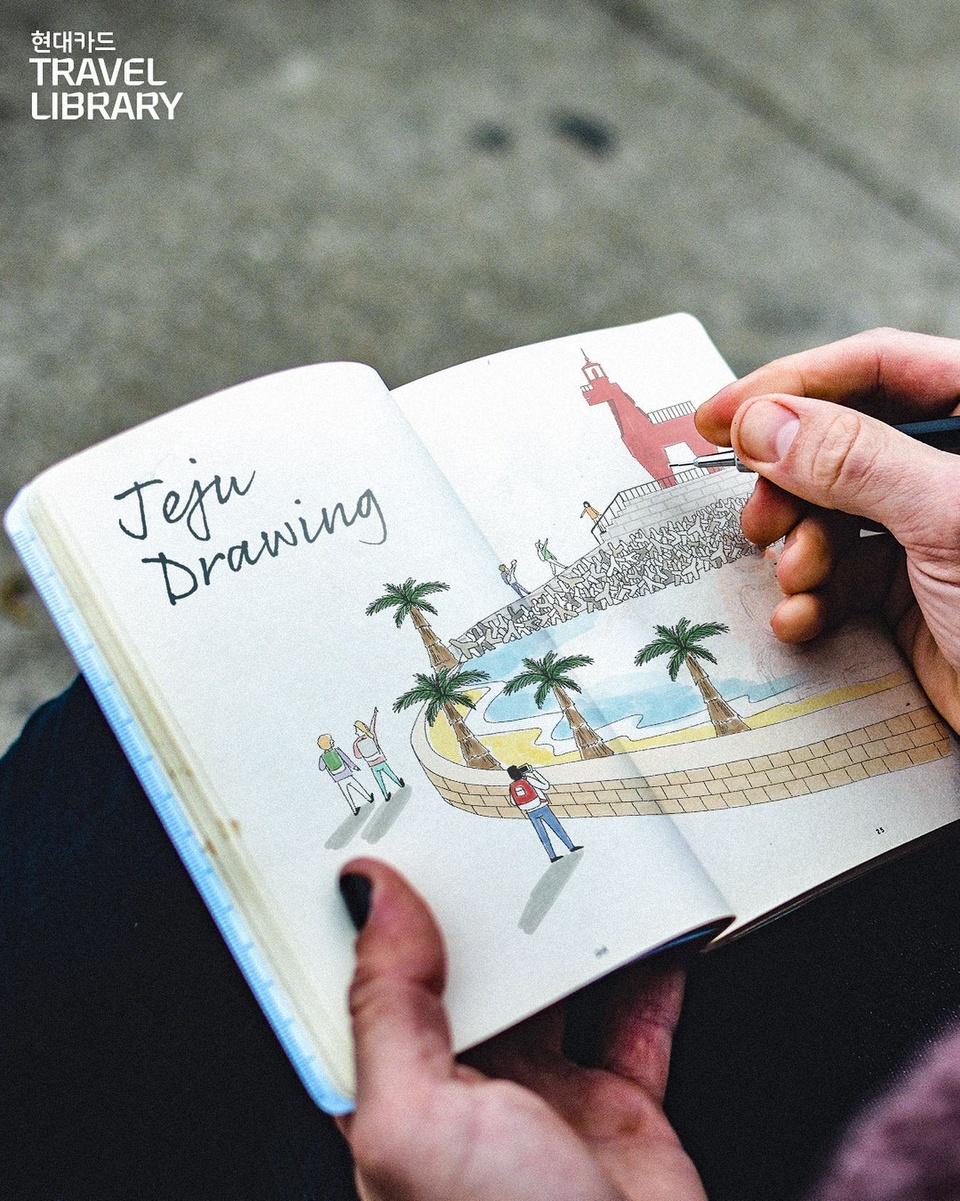 현대카드
TRAVEL
LIBRARY
Jeju
Drawing
25